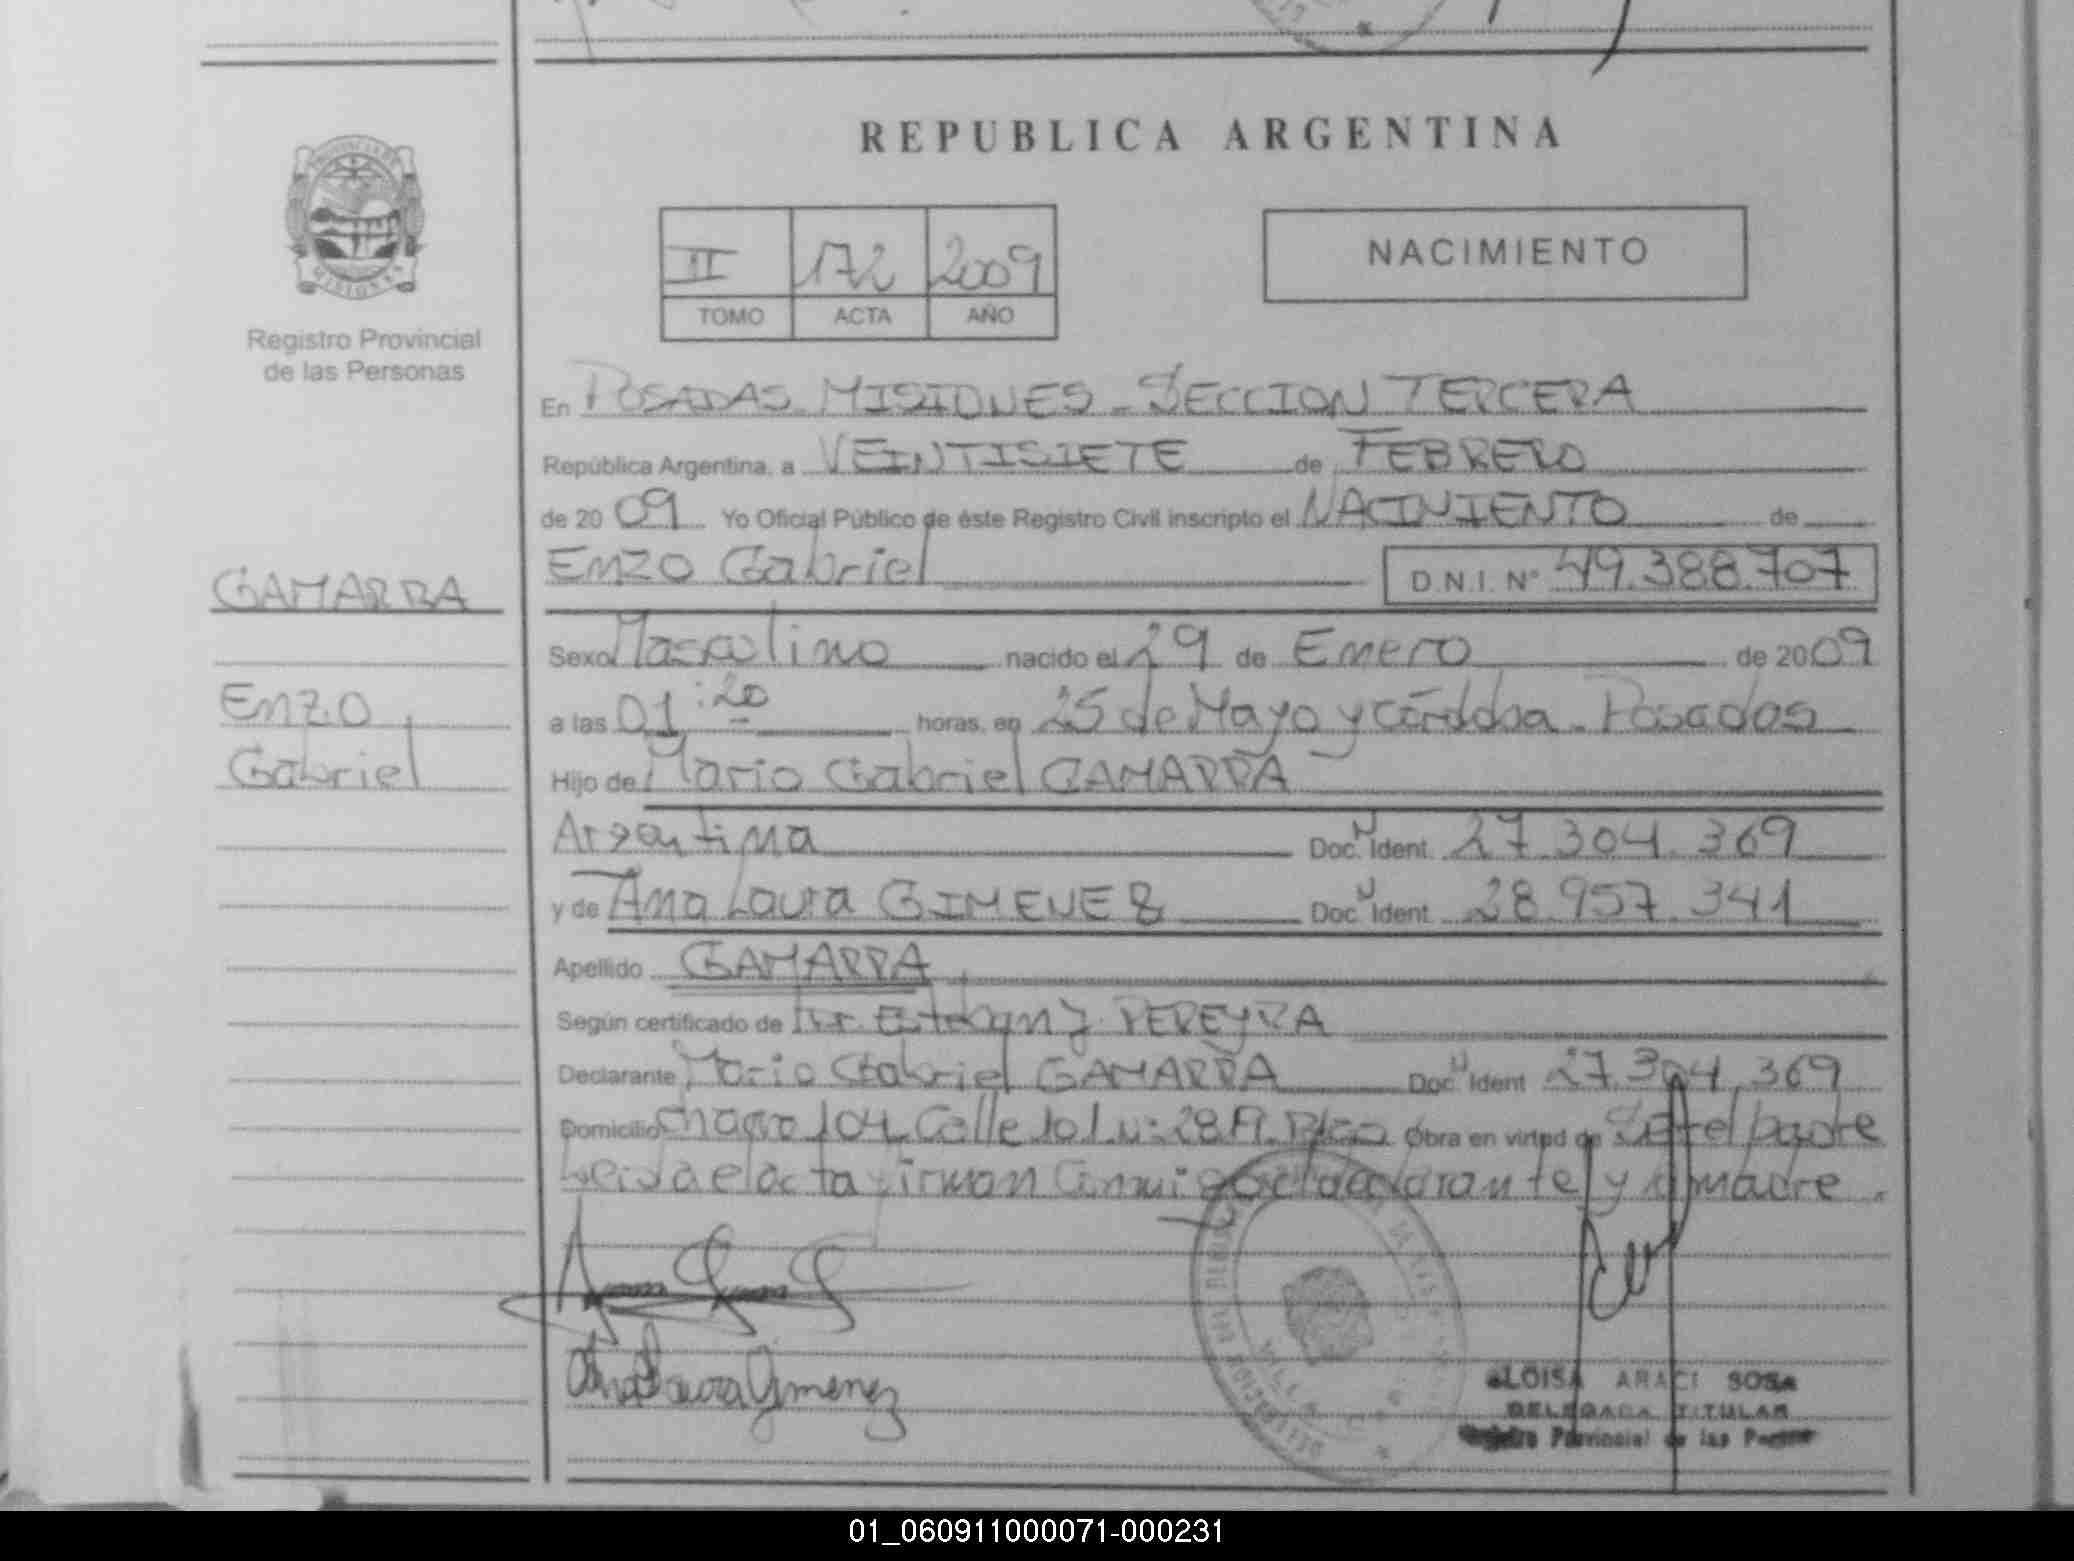 REPUBLICA ARGENTINA
PROVINCIA DE
MISIONES
Registro Provincial
de las Personas
II 172 2009
TOMO ACTA AÑO
NACIMIENTO
En POSADAS MISIONES - SECCION TERCERA
República Argentina, a VEINTISIETE de FEBRERO
de 2009 Yo Oficial Público de éste Registro Civil inscripto el NACIMIENTO de
GAMARRA
Enzo Gabriel D.N.I. Nº 49.388.707
Sexo Masculino nacido el 29 de Enero de 2009
Enzo
a las 01:20 horas, en 25 de Mayo y Córdoba - Posadas
Gabriel
Hijo de Mario Gabriel GAMARRA
Argentina Doc. Ident. 27.304.369
y de Ana Laura GIMENEZ Doc. Ident. 28.957.341
Apellido GAMARRA
Según certificado de Dr. Esteban J. PEREYRA
Declarante Mario Gabriel GAMARRA Doc. Ident 27.304.369
Domicilio chacra 104 Calle 101 N: 28A Obra en virtud de el padre
Leida el acta firman Conmigo el declarante y la madre.
Ana Laura Gimenez
ELOISA ARACI SOSA
DELEGADA TITULAR
Registro Provincial de las Personas
01_060911000071-000231